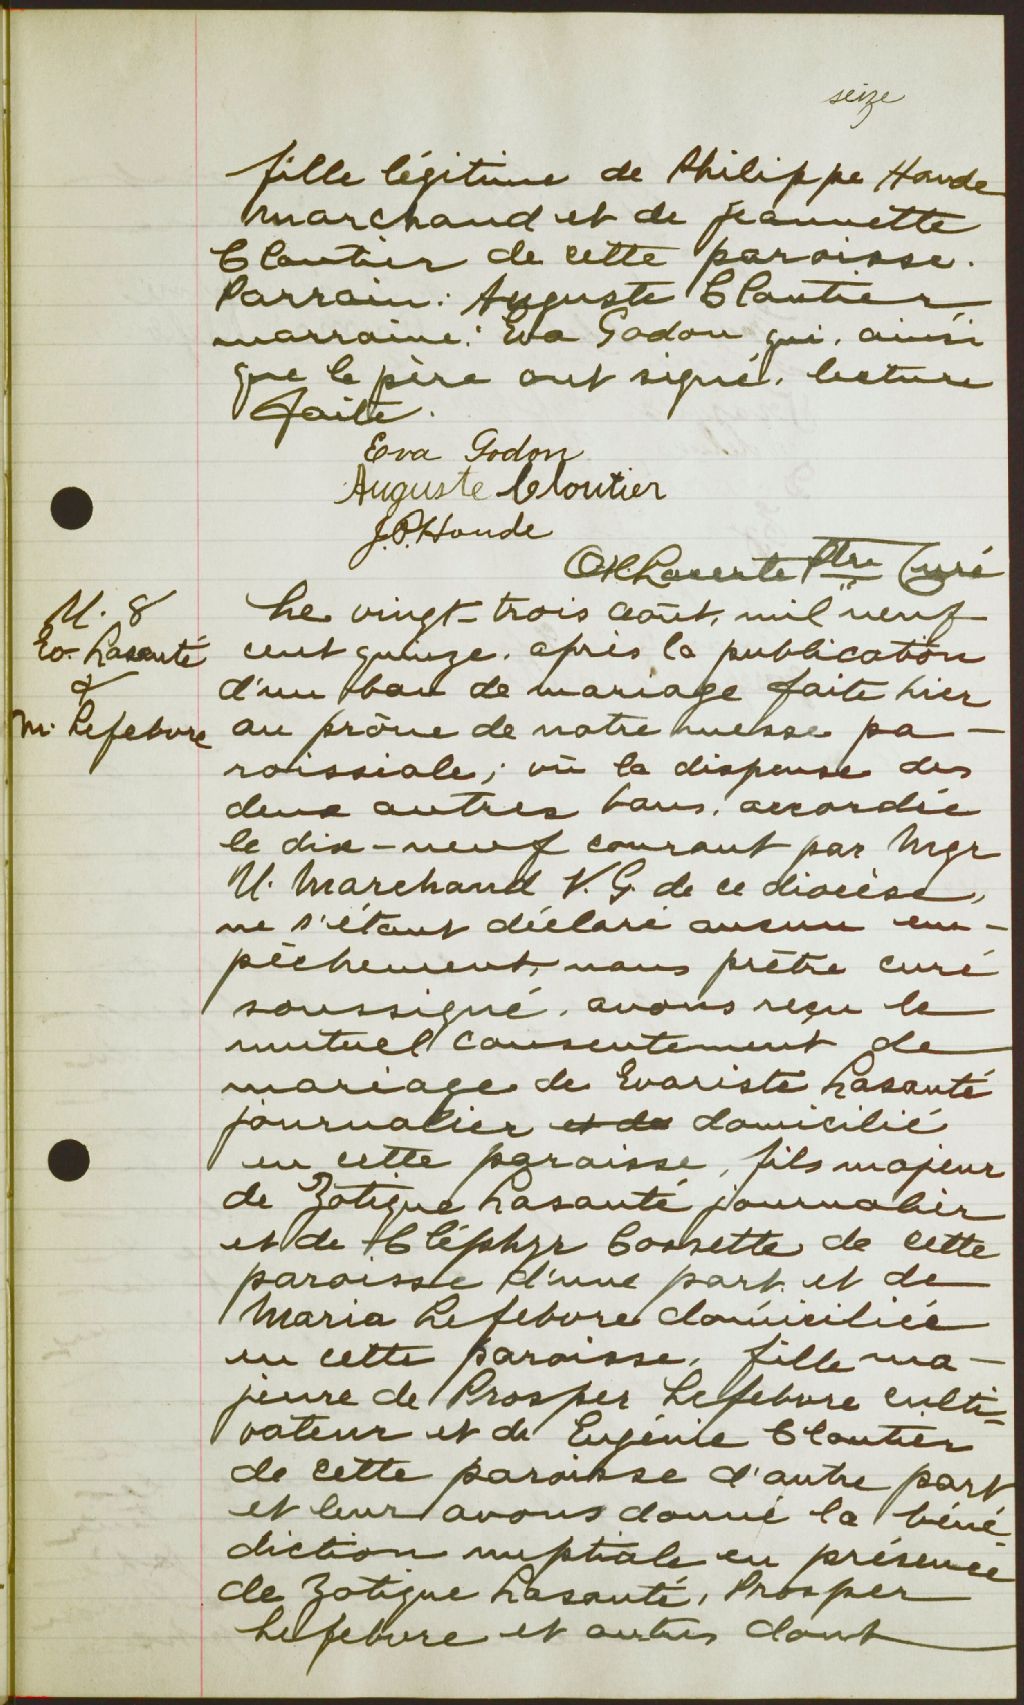 seize
fille légitime de Philippe Houde
marchand et de Jeannette
Cloutier de cette paroisse.
Parrain: Auguste Cloutier
marraine: Eva Godon qui, ainsi
que le père ont signé, lecture
faite.
Eva Godon
Auguste Cloutier
J.P. Houde
Lacerte Ptre Curé
M. 8
Ev. Lasanté
&
M. Lefebvre
Le vingt-trois août, mil neuf
cent quinze, après la publication
d'un ban de mariage faite hier
au prône de notre messe pa-
roissiale; vu la dispense des
deux autres bans, accordée
le dix-neuf courant par Mgr
U. Marchand V.G. de ce diocèse,
ne s'étant déclaré aucun em-
pêchement, nous prêtre curé
soussigné, avons reçu le
mutuel consentement de
mariage de Evariste Lasanté
journalier et de domicilié
en cette paroisse, fils majeur
de Zotique Lasanté journalier
et de Cléphyr Cossette de cette
paroisse d'une part et de
Maria Lefebvre domiciliée
en cette paroisse, fille ma-
jeure de Prosper Lefebvre culti-
vateur et de Eugénie Cloutier
de cette paroisse d'autre part
et leur avons donné la béné-
diction nuptiale en présence
de Zotique Lasanté, Prosper
Lefebvre et autres dont